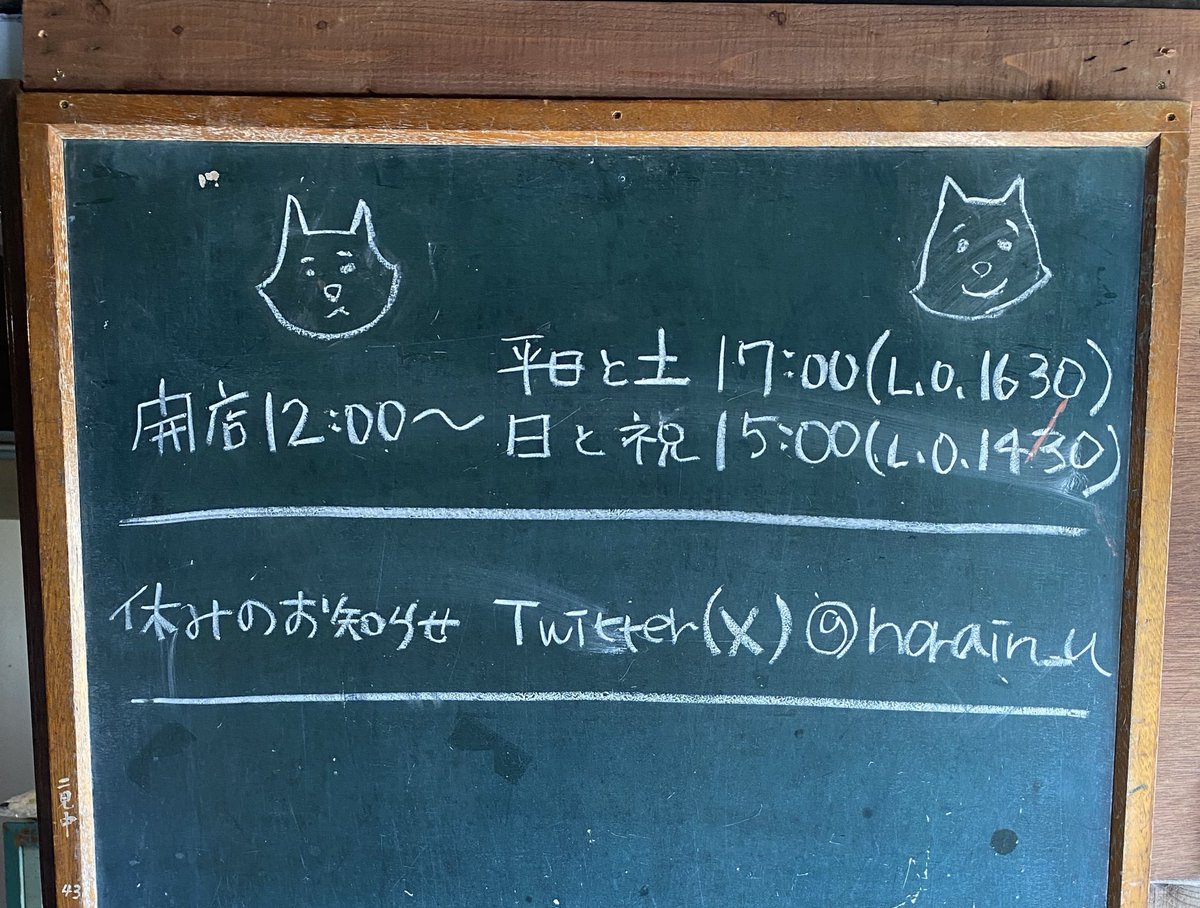 平日と土 17:00(L.O.1630)
開店12:00〜
日と祝 15:00(L.O.1430)
休みのお知らせ Twitter(X)@horain_u
二見中
43